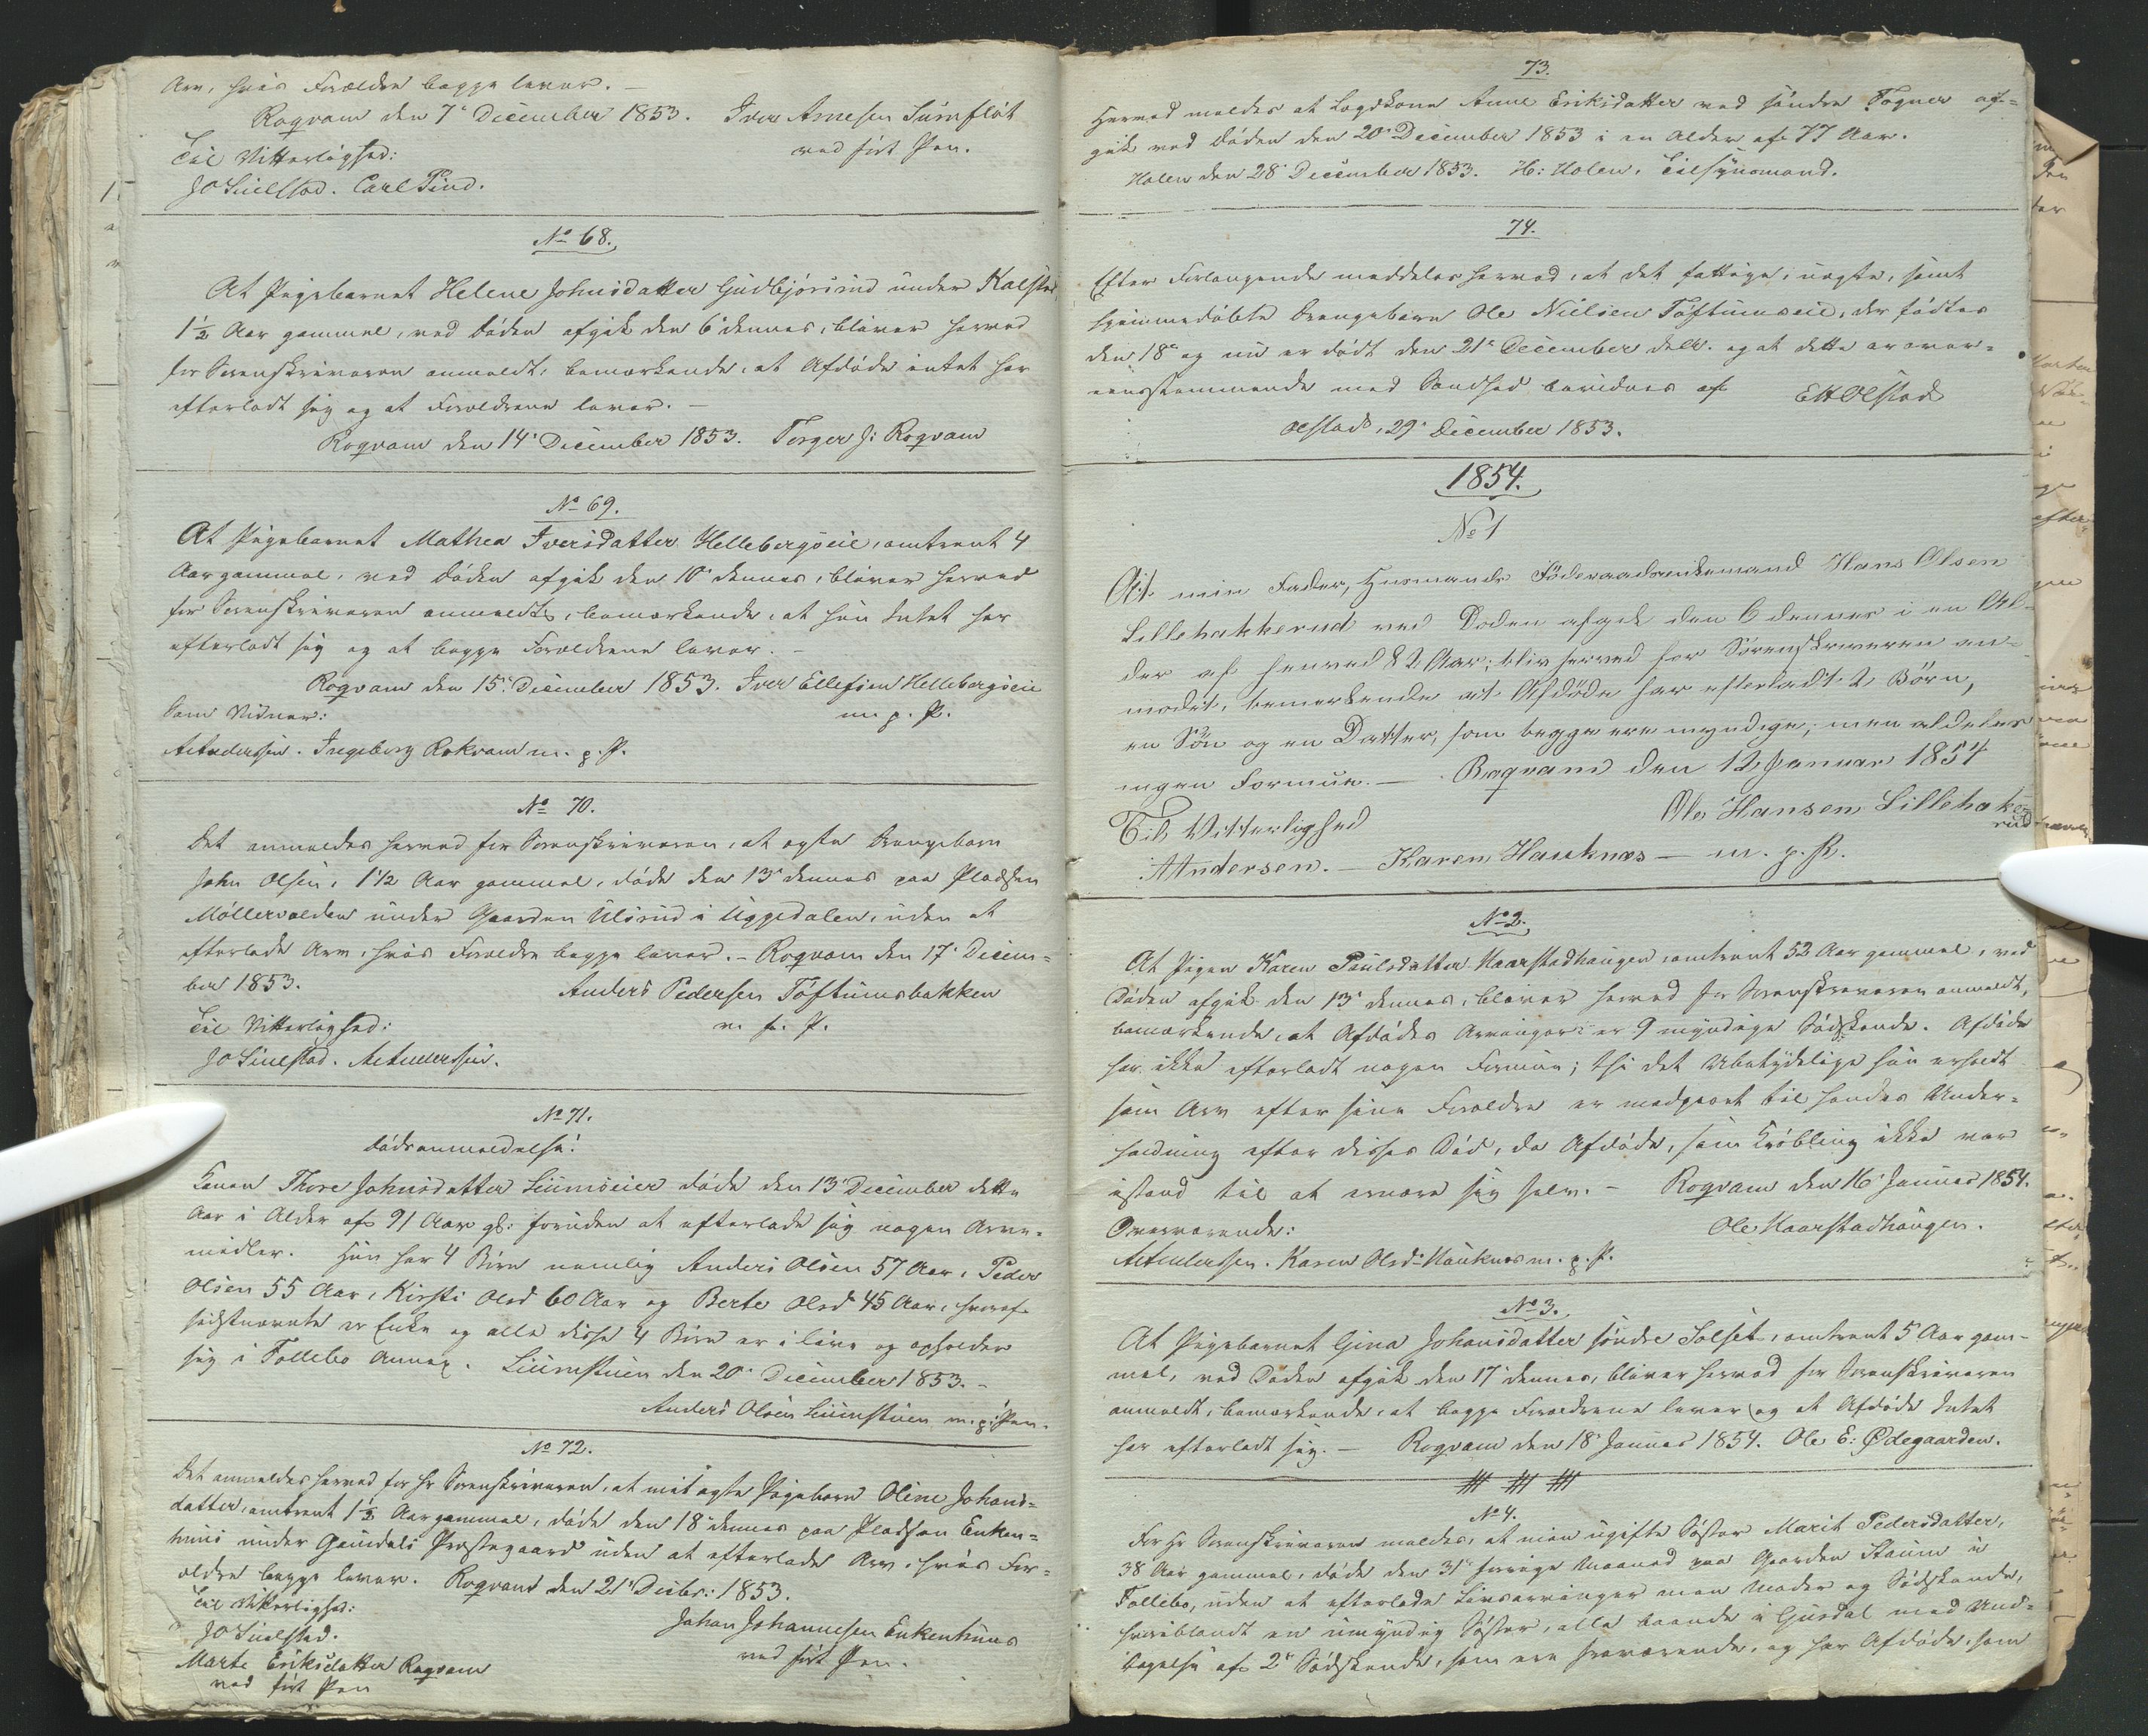 Arv, hvis Forældre begge lever. —
Roqvam den 7de December 1853. Iver Arnesen Sumflöt
Til Vitterlighed: med ført Pen.
JO Linelstad. Carl Pind.
No 68.
At Pigebarnet Helene Johnsdatter Gudbjörsrud under Kalstad,
1½ Aar gammel, ved Døden afgik den 6te dennes, bliver herved
for Sorenskriveren anmeldt, bemærkende, at Afdøde intet har
efterladt sig og at Forældrene lever. —
Roqvam den 14de December 1853. Torger J: Roqvam
No 69.
At Pigebarnet Mathea Iversdatter Hellebergseie, omtrent 4
Aar gammel, ved Døden afgik den 10de dennes, bliver herved
for Sorenskriveren anmeldt, bemærkende, at hun Intet har
efterladt sig og at begge Forældrene lever. —
Roqvam den 15de December 1853. Iver Ellefsen Hellebergseie
Som Vidner: m. p. P.
A Andersen. Ingeborg Rokvam m. p. P.
No 70.
Det anmeldes herved for Sorenskriveren, at ægte Drengebarn
John Olsen, 1½ Aar gammel, døde den 13de dennes paa Pladsen
Möllervolden under Gaarden Ulsrud i Uggedalen, uden at
efterlade Arv, hvis Forældre begge lever. — Roqvam den 17de Decem=
ber 1853. Anders Pedersen Töftumsbakken
Til Vitterlighed: m. f. P.
JO Linelstad. A Andersen.
No 71.
Dødsanmeldelse!
Konen Thore Johnsdatter Liumseier døde den 13de December dette
Aar i Alder af 91 Aar gl: foruden at efterlade sig nogen Arve=
midler. Hun har 4 Børn nemlig Anders Olsen 57 Aar, Peder
Olsen 55 Aar, Kirsti Olsd 60 Aar og Berte Olsd 45 Aar, hvoraf
sidstnævnte er Enke og alle disse 4 Børn er i live og opholder
sig i Follebo Annex. Liumstuen den 20de December 1853. —
Anders Olsen Liumstuen m. p: Pen.
No 72.
Det anmeldes herved for Hr Sorenskriveren, at mit ægte Pigebarn Oline Johans=
datter, omtrent 1½ Aar gammel, døde den 18de dennes paa Pladsen Enken=
huus under Gausdals Præstegaard uden at efterlade Arv, hvis For=
ældre begge lever. Roqvam den 21de Decbr: 1853.
Til Vitterlighed: Johan Johannesen Enkenhuus
JO Linelstad. med ført Pen.
Marte Eriksdatter Roqvam
med ført Pen
73.
Herved meldes at Lægdkone Anne Eriksdatter ved söndre Fagner af=
gik ved Døden den 20de December 1853 i en Alder af 77 Aar.
Holen den 28de December 1853. H: Holen, Tilsynsmand.
74.
Efter Forlangende meddeles herved, at det fattige, uægte, samt
hjemmedøbte Drengebarn Ole Nielsen Töftumseie, der fødtes
den 18de og nu er dødt den 21de December dels. og at dette er over=
eensstemmende med Sandhed bevidnes af EH Olstad
Olstad, 29de December 1853.
1854.
No 1
At min Fader, Huusmands Föderaadsenkemand Hans Olsen
Lillehakkerud ved Döden afgik den 6 dennes i en Al-
der af henved 82 Aar; bliv herved for Sörenskriveren an-
meldt, bemerkende at Afdöde har efterladt 2 Børn,
en Sön og en Datter, som begge ere myndige; men aldeles
ingen Formue. — Roqvam den 12 Januar 1854
Til Vitterlighed Ole Hansen Lillehake
rud
A Andersen. — Karen Hauknæs — m. p. P.
No 2.
At Pigen Karen Poulsdatter Haarstadhaugen, omtrent 52 Aar gammel, ved
Døden afgik den 13de dennes, bliver herved for Sorenskriveren anmeldt,
bemærkende, at Afdødes Arvinger er 9 myndige Sødskende. Afdøde
har ikke efterladt nogen Formue; thi det Ubetydelige hun erholdt
som Arv efter sine Forældre er medgaaet til hendes Under=
holdning efter disses Død, da Afdøde, som Krøbling ikke var
istand til at ernære sig selv. — Roqvam den 16de Januar 1854.
Overværende: Ole Haarstadhaugen.
A Andersen. Karen Olsd. Hauknæs m. p. P.
No 3.
At Pigebarnet Gina Johansdatter söndre Solset, omtrent 5 Aar gam-
mel, ved Døden afgik den 17de dennes, bliver herved for Sorenskriveren
anmeldt, bemærkende, at begge Forældrene lever og at Afdøde Intet
har efterladt sig. — Roqvam den 18de Januar 1854. Ole E: Ödegaarden.
No 4.
For Hr Sorenskriveren meldes, at min ugifte Søster Marit Pedersdatter,
38 Aar gammel, døde den 31te forrige Maaned paa Gaarden Staum i
Follebo, uden at efterlade Livsarvinger men Moder og Sødskende,
hvoriblandt en umyndig Søster, alle boende i Gusdal med Und=
tagelse af 2de Sødskende, som ere fraværende, og har Afdøde, som